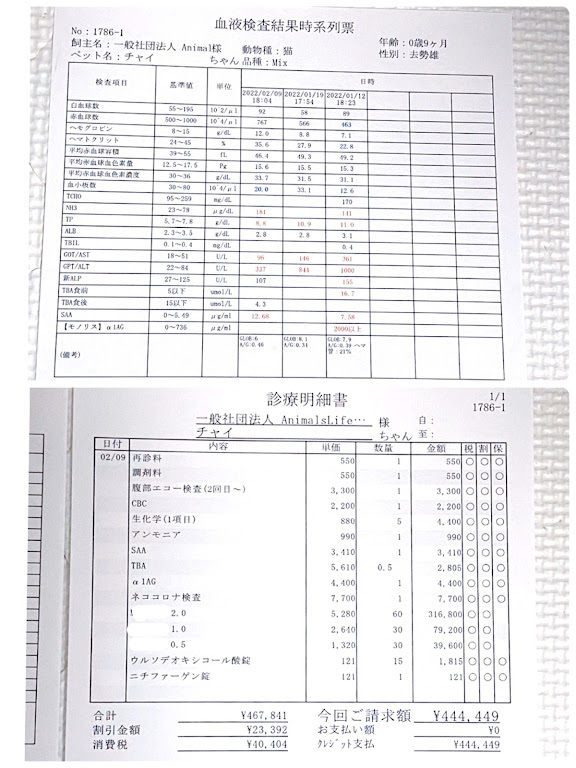 血液検査結果時系列票
No : 1786-1
飼主名 : 一般社団法人 Animal様 動物種 : 猫 年齢 : 0歳9ヶ月
ペット名 : チャイ ちゃん 品種 : Mix 性別 : 去勢雄
検査項目 基準値 単位 日時
2022/02/09 18:04 2022/01/19 17:54 2022/01/12 18:23
白血球数 55～195 10^2/μl 92 58 89
赤血球数 500～1000 10^4/μl 767 566 463
ヘモグロビン 8～15 g/dL 12.0 8.8 7.1
ヘマトクリット 24～45 % 35.6 27.9 22.8
平均赤血球容積 39～55 fL 46.4 49.3 49.2
平均赤血球血色素量 12.5～17.5 Pg 15.6 15.5 15.3
平均赤血球血色素濃度 30～36 g/dL 33.7 31.5 31.1
血小板数 30～80 10^4/μl 20.0 33.1 12.6
TCHO 95～259 mg/dL 170
NH3 23～78 μg/dL 181 141
TP 5.7～7.8 g/dL 8.8 10.9 11.0
ALB 2.3～3.5 g/dL 2.8 2.8 3.1
TBIL 0.1～0.4 mg/dL 0.4
GOT/AST 18～51 U/L 96 146 261
GPT/ALT 22～84 U/L 337 844 1000
新ALP 27～125 U/L 107 155
TBA食前 5以下 umol/L 16.7
TBA食後 15以下 umol/L 4.3
SAA 0～5.49 μg/ml 12.68 7.58
【モノリス】α1AG 0～736 μg/ml 2000以上
(備考) GLOB:6 A/G:0.46 GLOB:8.1 A/G:0.34 GLOB:7.9 A/G:0.39 ヘマ 管:21%
診療明細書
1/1
1786-1
一般社団法人 AnimalsLife… 様 自:
チャイ ちゃん 至:
日付 内容 単価 数量 金額 税 割 保
02/09 再診料 550 1 550 ○ ○ ○
調剤料 550 1 550 ○ ○ ○
腹部エコー検査(2回目～) 3,300 1 3,300 ○ ○ ○
CBC 2,200 1 2,200 ○ ○ ○
生化学(1項目) 880 5 4,400 ○ ○ ○
アンモニア 990 1 990 ○ ○ ○
SAA 3,410 1 3,410 ○ ○ ○
TBA 5,610 0.5 2,805 ○ ○ ○
α1AG 4,400 1 4,400 ○ ○ ○
ネココロナ検査 7,700 1 7,700 ○ ○ ○
2.0 5,280 60 316,800 ○ ○
1.0 2,640 30 79,200 ○ ○
0.5 1,320 30 39,600 ○ ○
ウルソデオキシコール酸錠 121 15 1,815 ○ ○ ○
ニチファーゲン錠 121 1 121 ○ ○ ○
合計 ¥467,841 今回ご請求額 ¥444,449
割引金額 ¥23,392 お支払い額 ¥0
消費税 ¥40,404 クレジット支払 ¥444,449